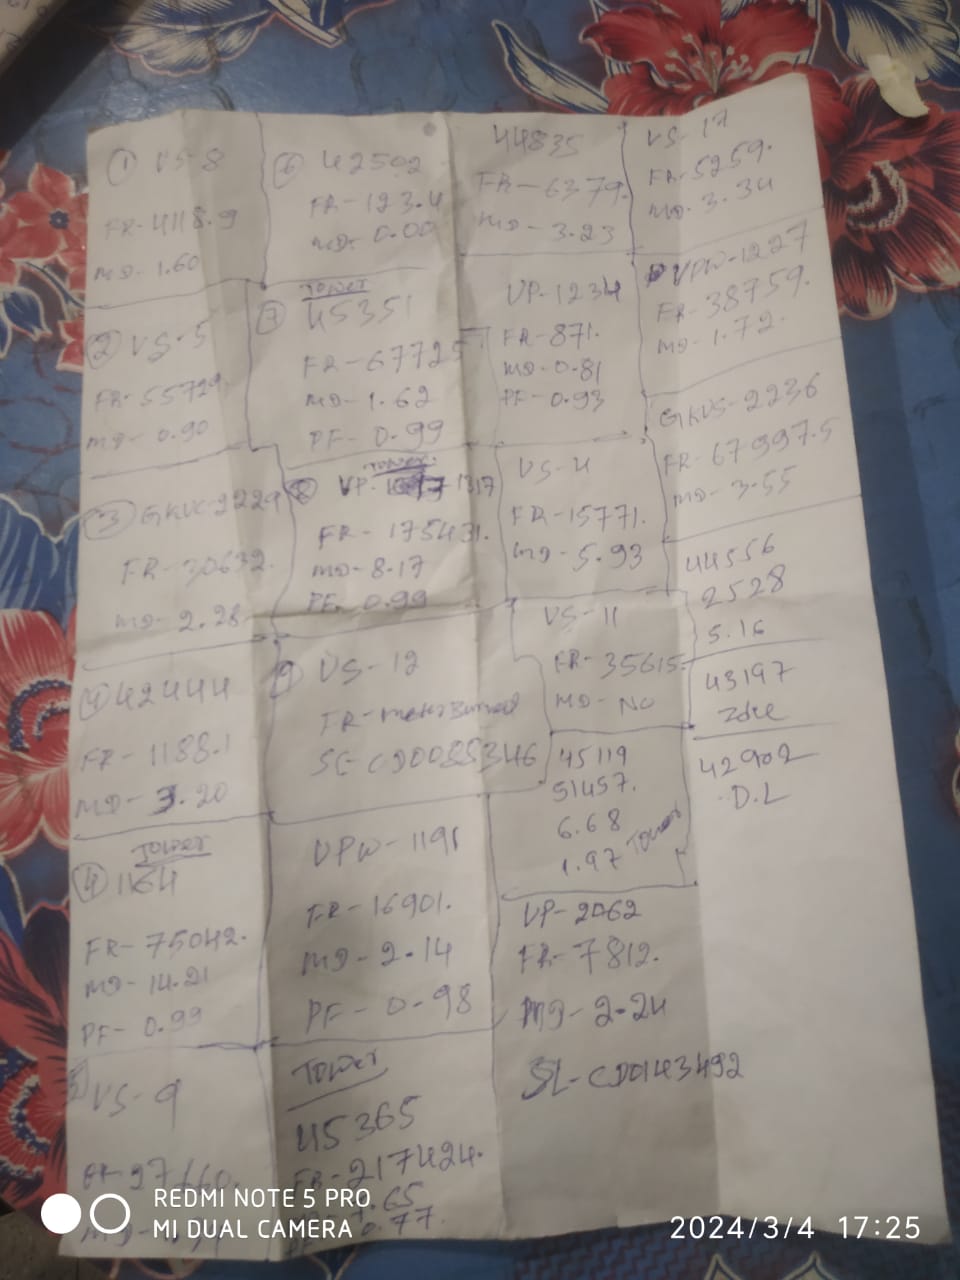 ① VS-8
FR-4118.9
MD-1.60
② VS-5
FR-55729
MD-0.90
③ GKVS-2229
FR-30632.
MD-2.28
④ 42444
FR-1188.1
MD-3.20
Tower
④ 1164
FR-75042.
MD-14.21
PF-0.99
5 VS-9
⑥ 42502
FR-123.4
MD-0.00
Tower
⑦ 45351
FR-67725
MD-1.62
PF-0.99
Tower
⑧ VP-1317
FR-175431.
MD-8.17
PF-0.99
⑨ VS-12
FR-
SL-CD0085346
VPW-1191
FR-16901.
MD-2.14
PF-0.98
Tower
45365
FR-217424.
44835
FR-6379.
MD-3.23
VP-1234
FR-871.
MD-0.81
PF-0.93
VS-4
FR-15771.
MD-5.93
VS-11
FR-35615.
MD-NO
45119
51457.
6.68
1.97 Tower
VP-2062
FR-7812.
MD-2.24
SL-CD0143492
VS-17
FR-5259.
MD-3.34
VPW-1227
FR-38759.
MD-1.72.
GKVS-2236
FR-67997.5
MD-3.55
44556
2528
5.16
43197
42902
D.L
REDMI NOTE 5 PRO
MI DUAL CAMERA
2024/3/4 17:25